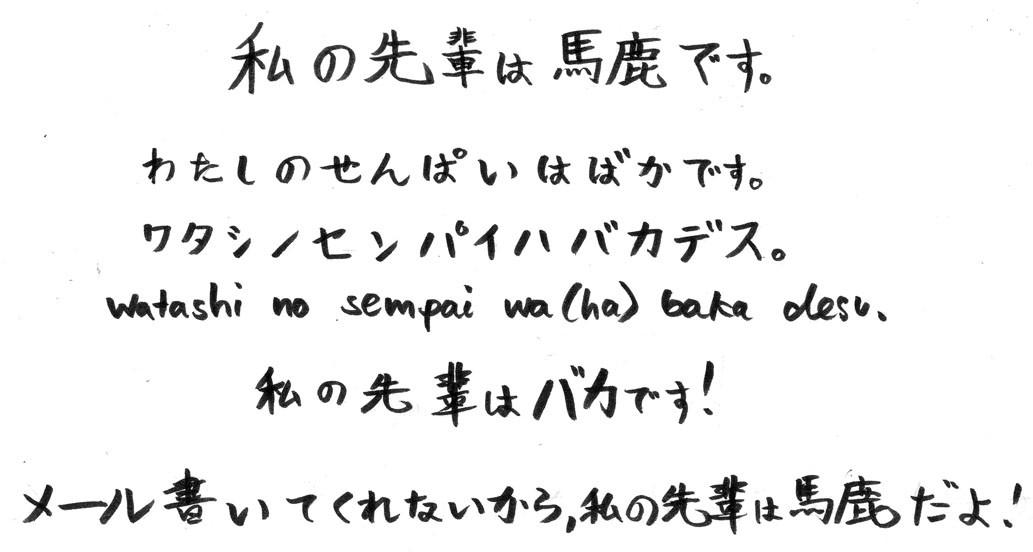 私の先輩は馬鹿です。
わたしのせんぱいはばかです。
ワタシノセンパイハバカデス。
watashi no sempai wa (ha) baka desu.
私の先輩はバカです!
メール書いてくれないから,私の先輩は馬鹿だよ!